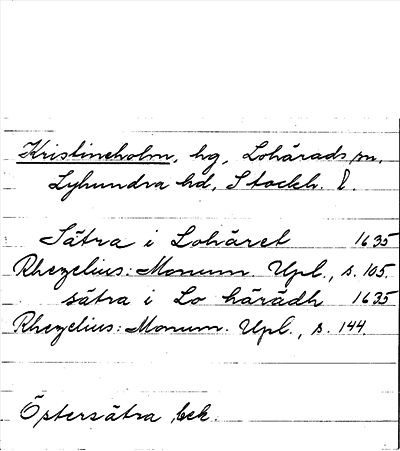 Kristineholm, hg, Lohärads sn.
Lyhundra hd, Stockh. l.
Sätra i Lohäret 1635
Rhezelius: Monum. Upl., s. 105.
sätra i Lo härädh 1635
Rhezelius: Monum. Upl., s. 144.
Östersätra, bek.